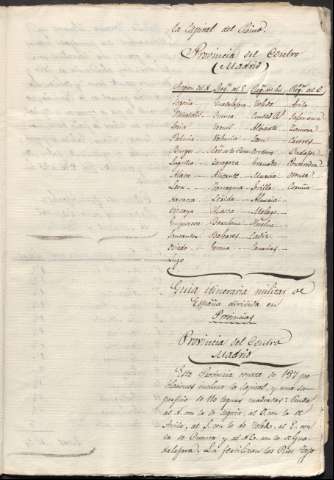 la Capital del Reino.
Provincia del Centro
(Madrid)
Segovia Guadalajara Toledo Avila
Cuenca Ciudad Rl. Salamanca
Soria Teruel Albacete Zamora
Valencia Jaen Caceres
Burgos Badajoz
Logroño Zaragoza Granada Pontevedra
Alava Alicante Murcia Orense
Leon Tarragona Sevilla Coruña
Navarra Lerida Almeria
Vizcaya Huesca Malaga
Guipuzcoa Barcelona Huelva
Santander Baleares Cadiz
Oviedo Gerona Canarias
Lugo
Guia itineraria militar de
España dividida en
Provincias
Provincia del Centro
Madrid
Esta Provincia consta de 197 po
blaciones incluso la Capital, y una su-
perficie de 110 leguas cuadradas: linda
al N. con la de Segovia, al O. con la de
Avila, al S. con la de Toledo, al E. con
la de Cuenca y al N.E. con la de Gua
dalajara. La fertilizan los Rios Tajo